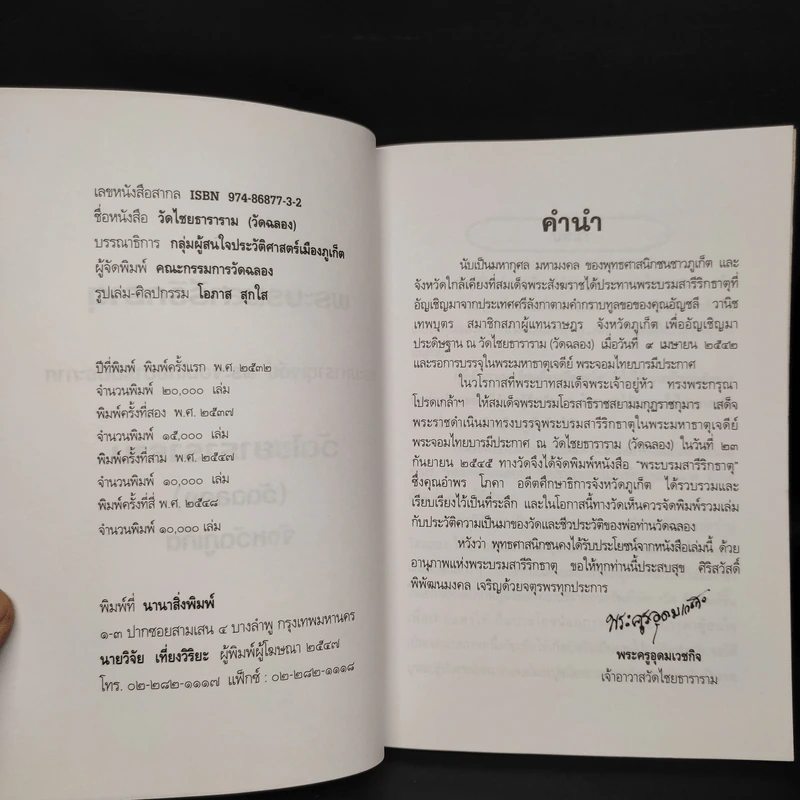 เลขหนังสือสากล ISBN 974-86877-3-2
ชื่อหนังสือ วัดไชยธาราราม (วัดฉลอง)
บรรณาธิการ กลุ่มผู้สนใจประวัติศาสตร์เมืองภูเก็ต
ผู้จัดพิมพ์ คณะกรรมการวัดฉลอง
รูปเล่ม-ศิลปกรรม โอภาส สุกใส
ปีที่พิมพ์ พิมพ์ครั้งแรก พ.ศ. ๒๕๓๒
จำนวนพิมพ์ ๒๐,๐๐๐ เล่ม
พิมพ์ครั้งที่สอง พ.ศ. ๒๕๓๗
จำนวนพิมพ์ ๑๕,๐๐๐ เล่ม
พิมพ์ครั้งที่สาม พ.ศ. ๒๕๔๗
จำนวนพิมพ์ ๑๐,๐๐๐ เล่ม
พิมพ์ครั้งที่สี่ พ.ศ. ๒๕๔๘
จำนวนพิมพ์ ๑๐,๐๐๐ เล่ม
พิมพ์ที่ นานาสิ่งพิมพ์
๑-๓ ปากซอยสามเสน ๔ บางลำพู กรุงเทพมหานคร
นายวิจัย เที่ยงวิริยะ ผู้พิมพ์ผู้โฆษณา ๒๕๔๗
โทร. ๐๒-๒๘๒-๑๑๑๗ แฟ็กซ์ : ๐๒-๒๘๒-๑๑๑๘
คำนำ
นับเป็นมหากุศล มหามงคล ของพุทธศาสนิกชนชาวภูเก็ต และ
จังหวัดใกล้เคียงที่สมเด็จพระสังฆราชได้ประทานพระบรมสารีริกธาตุที่
อัญเชิญมาจากประเทศศรีลังกาตามคำกราบทูลขอของคุณอัญชลี วานิช
เทพบุตร สมาชิกสภาผู้แทนราษฎร จังหวัดภูเก็ต เพื่ออัญเชิญมา
ประดิษฐาน ณ วัดไชยธาราราม (วัดฉลอง) เมื่อวันที่ ๙ เมษายน ๒๕๔๒
และรอการบรรจุในพระมหาธาตุเจดีย์ พระจอมไทยบารมีประกาศ
ในวโรกาสที่พระบาทสมเด็จพระเจ้าอยู่หัว ทรงพระกรุณา
โปรดเกล้าฯ ให้สมเด็จพระบรมโอรสาธิราชสยามมกุฎราชกุมาร เสด็จ
พระราชดำเนินมาทรงบรรจุพระบรมสารีริกธาตุในพระมหาธาตุเจดีย์
พระจอมไทยบารมีประกาศ ณ วัดไชยธาราราม (วัดฉลอง) ในวันที่ ๒๓
กันยายน ๒๕๔๕ ทางวัดจึงได้จัดพิมพ์หนังสือ “พระบรมสารีริกธาตุ”
ซึ่งคุณอำพร โภคา อดีตศึกษาธิการจังหวัดภูเก็ต ได้รวบรวมและ
เรียบเรียงไว้เป็นที่ระลึก และในโอกาสนี้ทางวัดเห็นควรจัดพิมพ์รวมเล่ม
กับประวัติความเป็นมาของวัดและชีวประวัติของพ่อท่านวัดฉลอง
หวังว่า พุทธศาสนิกชนคงได้รับประโยชน์จากหนังสือเล่มนี้ ด้วย
อานุภาพแห่งพระบรมสารีริกธาตุ ขอให้ทุกท่านนี้ประสบสุข ศิริสวัสดิ์
พิพัฒนมงคล เจริญด้วยจตุรพรทุกประการ
พระครูอุดมเวชกิจ
พระครูอุดมเวชกิจ
เจ้าอาวาสวัดไชยธาราราม